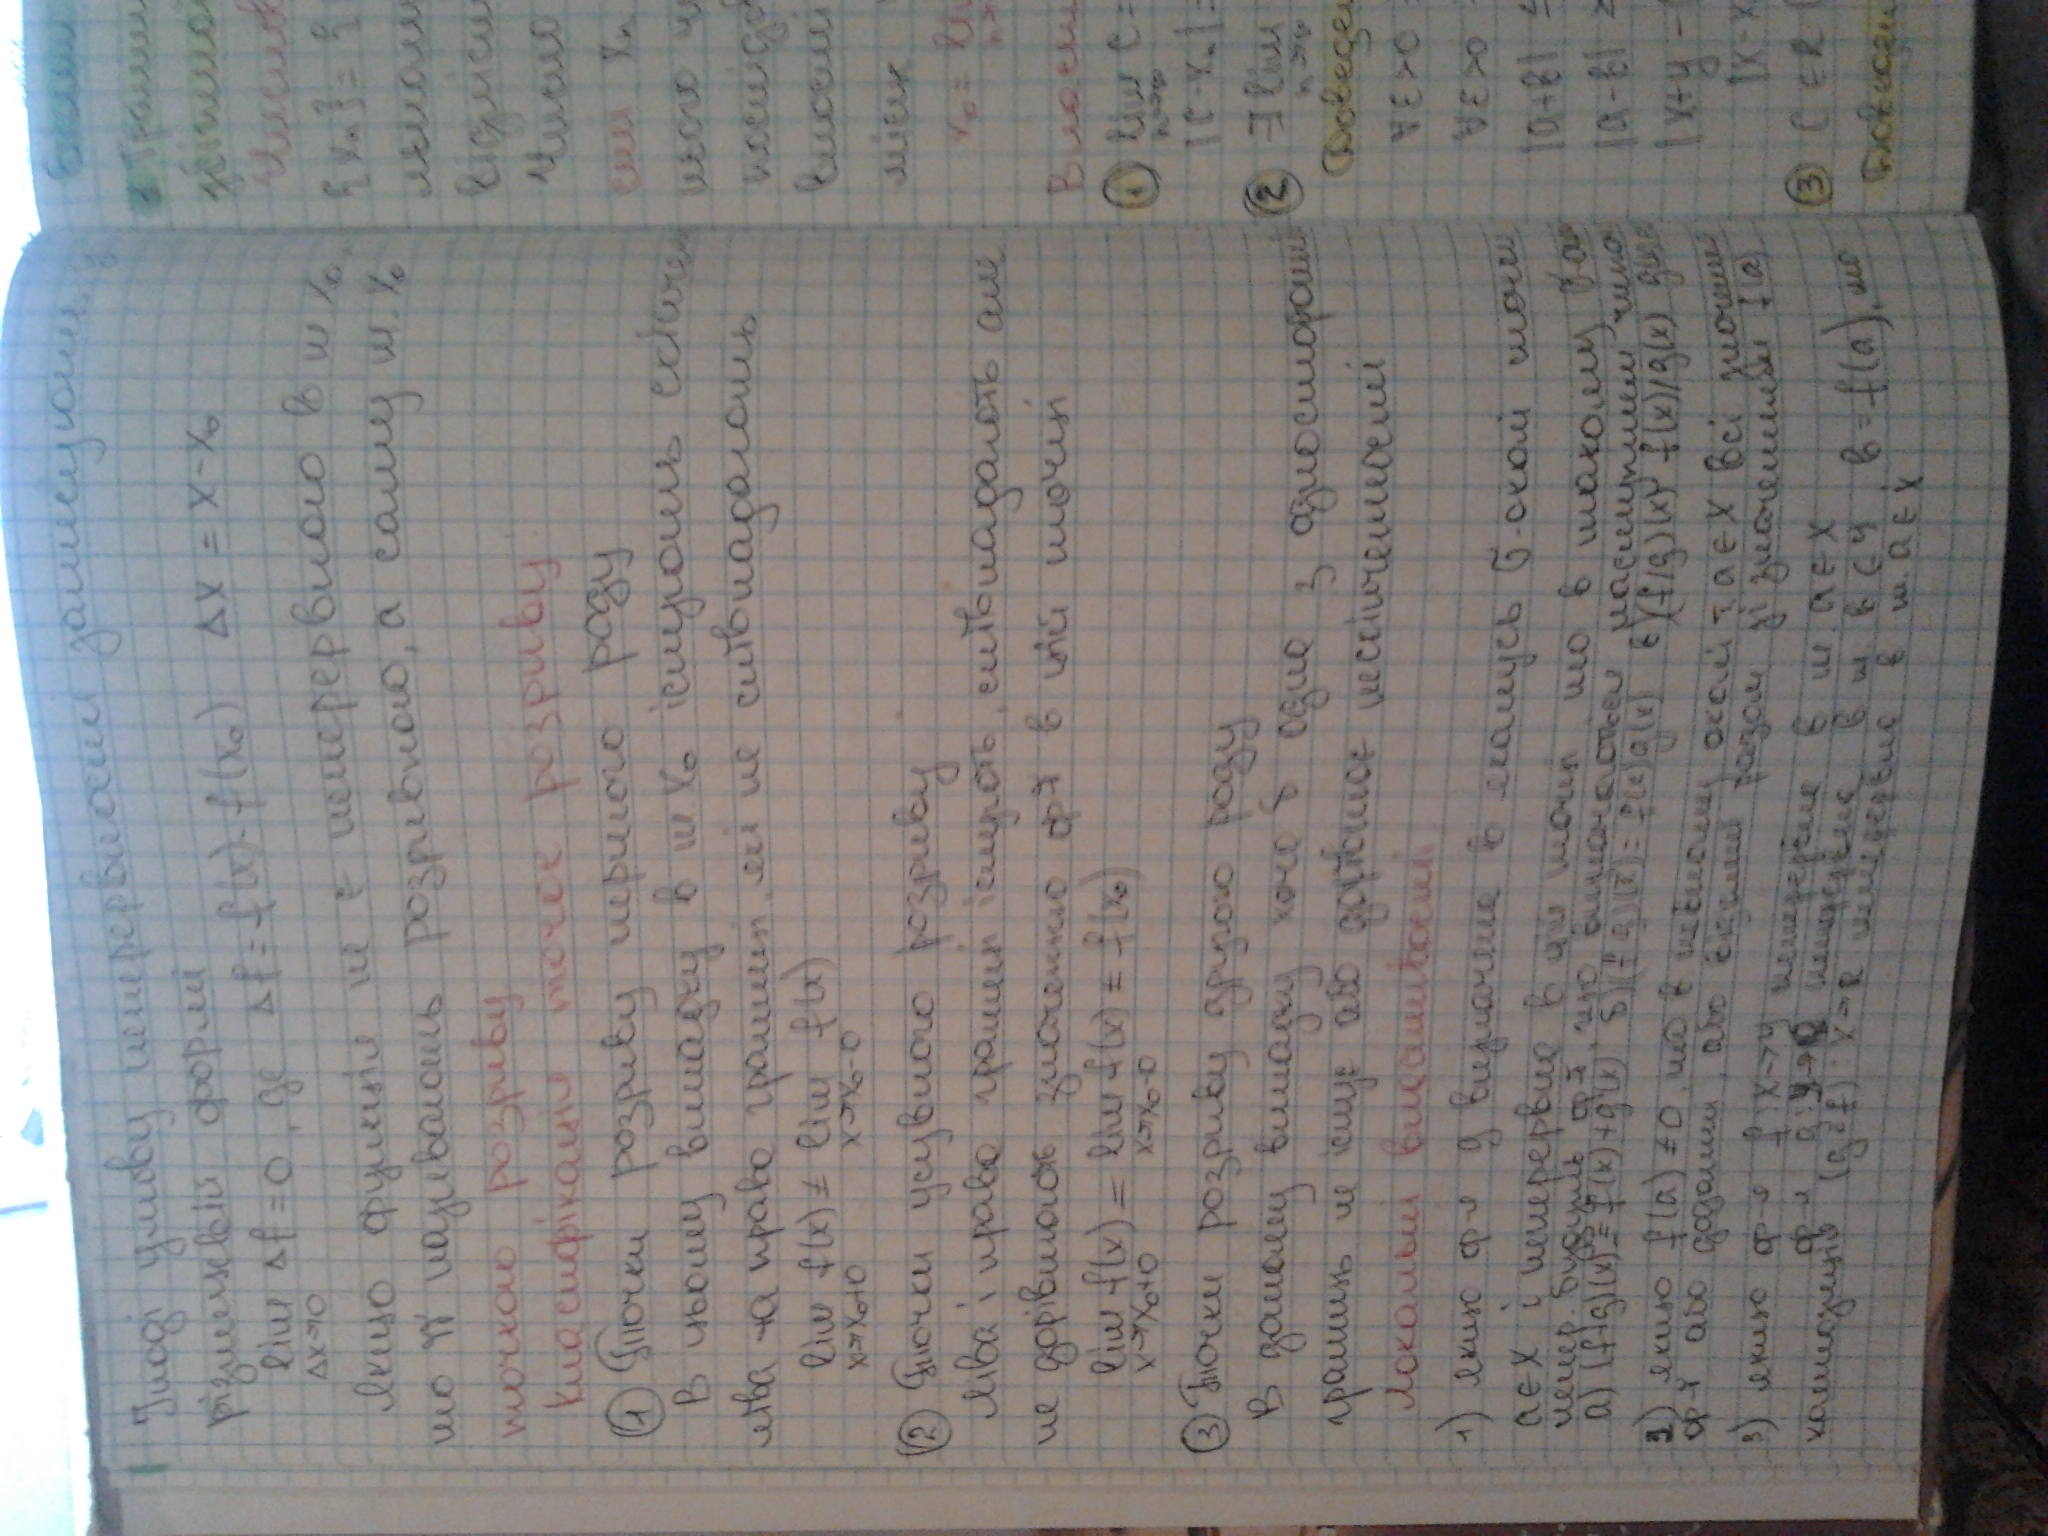 Іноді умову неперервності записують у
різницевій формі
lim Δf = 0, де Δf = f(x) - f(x₀) Δx = x - x₀
Δx→0
Якщо функція не є неперервною в т x₀,
то її називають розривною, а саму т. x₀
точкою розриву
Класифікація точок розриву:
① Точки розриву першого роду
В цьому випадку в т. x₀ існують скінчен
ліва та права границі, які не співпадають
lim f(x) ≠ lim f(x)
x→x₀+0 x→x₀-0
② Точки усувного розриву
Ліва і права границі існують, співпадають але
не дорівнюють значенню ф-ї в цій точці
lim f(x) = lim f(x) ≠ f(x₀)
x→x₀+0 x→x₀-0
③ Точки розриву другого роду
В даному випадку хоча б одна з односторонніх
границь не існує або дорівнює нескінченності
Локальні властивості
1) якщо ф-я g визначена в якомусь δ-околі точки
a∈X і неперервна в цій точці, то в такому δ-околі
непер. будуть ф-ї, що визначаються наступним чином
а) (f+g)(x) = f(x)+g(x) б) (f g)(x) = f(x)g(x) в) (f/g)(x) f(x)/g(x)
2) якщо f(a) ≠ 0, то в певному околі т. a∈X всі значення
ф-ї або додатні, або від'ємні разом зі значенням f(a)
3) якщо ф-я f: X→Y неперервна в т. a∈X
ф-я g: Y→R неперервна в т. b∈Y, b = f(a), то
композиція (g∘f): X→R неперервна в т. a∈X
{xₙ} = {
Число
xₙ
① lim C =
|C-xₙ| =
② ∃ lim
Доведен
∀ε>0
∀ε>0
|a+b| ≤
|a-b| ≥
|x+y -
|x-x
③ C∈R
Доведен